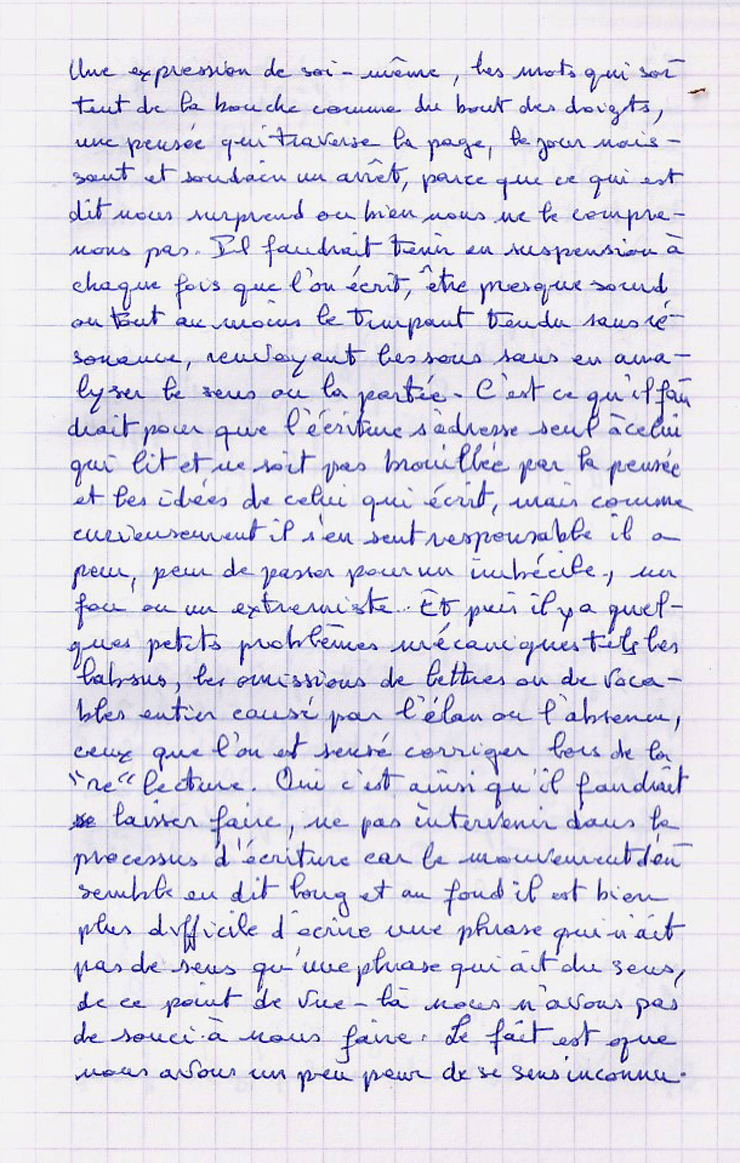 Une expression de soi-même, les mots qui sor
tent de la bouche comme du bout des doigts,
une pensée qui traverse la page, le jour nais-
sant et soudain un arrêt, parce que ce qui est
dit nous surprend ou bien nous ne le compre-
nons pas. Il faudrait tenir en suspension à
chaque fois que l'on écrit, être presque sourd
ou tout au moins le timpant tendu sans ré-
sonance, renvoyant les sons sans en ana-
lyser le sens ou la portée. C'est ce qu'il fau
drait pour que l'écriture s'adresse seul à celui
qui lit et ne soit pas brouillée par la pensée
et les idées de celui qui écrit, mais comme
curieusement il s'en sent responsable il a
peur, peur de passer pour un imbécile, un
fou ou un extremiste. Et puis il y a quel-
ques petits problèmes mécaniques tels les
labsus, les omissions de lettres ou de voca-
bles entier causé par l'élan ou l'absence,
ceux que l'on est sensé corriger lors de la
"re" lecture. Oui c'est ainsi qu'il faudrait
se laisser faire, ne pas intervenir dans le
processus d'écriture car le mouvement d'en
semble en dit long et au fond il est bien
plus difficile d'écrire une phrase qui n'ait
pas de sens qu'une phrase qui ait du sens,
de ce point de vue-là nous n'avons pas
de souci à nous faire. Le fait est que
nous avons un peu peur de se sens inconnu.